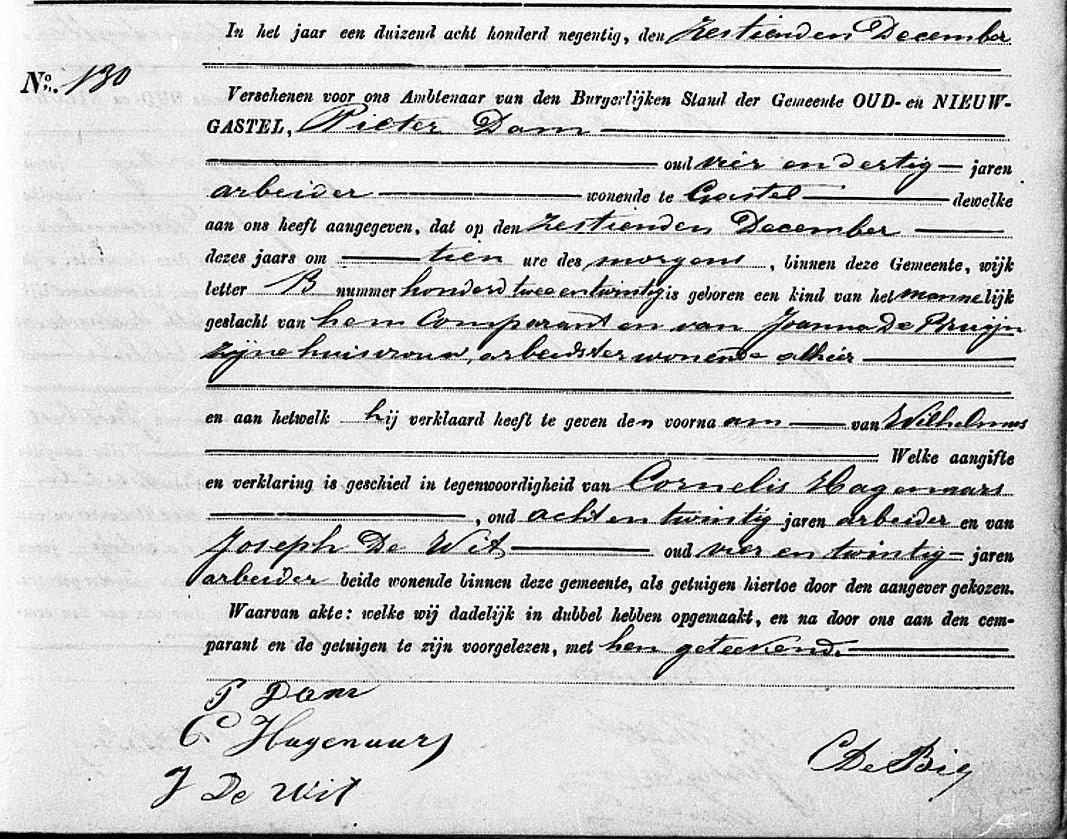 In het jaar een duizend acht honderd negentig, den zestienden December
No. 130
Verschenen voor ons Ambtenaar van den Burgerlijken Stand der Gemeente OUD- en NIEUW-
GASTEL, Pieter Dam
oud vier en dertig jaren
arbeider wonende te Gastel dewelke
aan ons heeft aangegeven, dat op den zestienden December
dezes jaars om tien ure des morgens, binnen deze Gemeente, wijk
letter B nummer honderd twee en twintig is geboren een kind van het mannelijk
geslacht van hem Comparant en van Joanna De Bruijn
zijne huisvrouw, arbeidster wonende alhier
en aan hetwelk hij verklaard heeft te geven den voornaam van Wilhelmus
Welke aangifte
en verklaring is geschied in tegenwoordigheid van Cornelis Hagenaars
, oud acht en twintig jaren arbeider en van
Joseph De Wit oud vier en twintig jaren
arbeider beide wonende binnen deze gemeente, als getuigen hiertoe door den aangever gekozen.
Waarvan akte: welke wij dadelijk in dubbel hebben opgemaakt, en na door ons aan den com-
parant en de getuigen te zijn voorgelezen, met hen geteekend.
P Dam
C Hagenaars
J De Wit
C De Bie